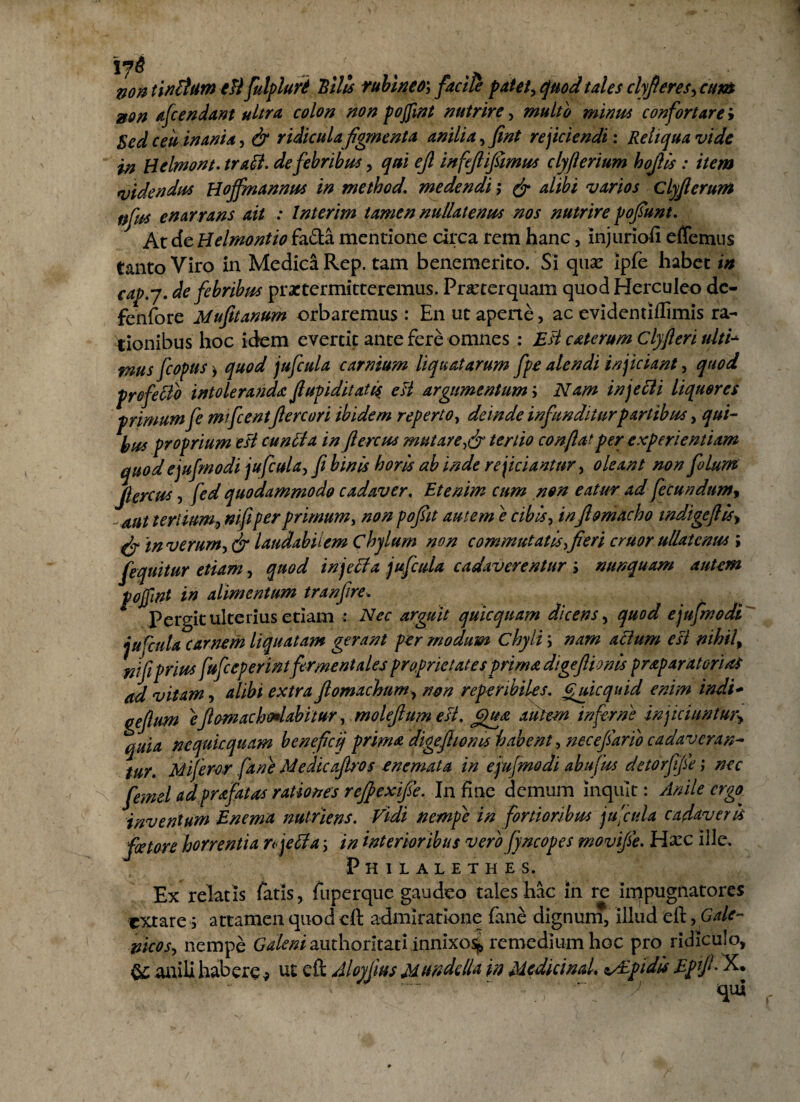 178
non tinctum est sulphure Bilis rubineo; facile patet, quod tales clysteres, cum
non ascendant ultra colon non possint nutrire, multo minus confortare;
Sed ceu inania, & ridicula figmenta anilia, sint rejiciendi: Reliqua vide
in Helmont. tract. de febribus, qui est infestissimus clysterium hostis: item
videndus Hoffmannus in method. medendi; & alibi varios Clysterum
usus enarrans ait: Interim tamen nullatenus nos nutrire possunt.
At de Helmontio factâ mentione circa rem hanc, injuriosi essemus
tanto Viro in Medicâ Rep. tam benemerito. Si quæ ipse habet in
cap. 7. de febribus prætermitteremus. Præterquam quod Herculeo de-
fensore Musitanum orbaremus: En ut apertè, ac evidentissimis ra-
tionibus hoc idem evertit ante fere omnes: Est cæterum Clysteri ulti-
mus scopus, quod juscula carnium liquatarum spe alendi injiciant, quod
profectò intolerandæ stupiditatis est argumentum; Nam injecti liquores
primum se miscent stercori ibidem reperto, deinde infunditur partibus, qui-
bus proprium est cuncta in stercus mutare, & tertio constat per experientiam
quod ejusmodi juscula, si binis horis ab inde rejiciantur, oleant non solum
stercus, sed quodammodo cadaver. Etenim cum non eatur ad secundum,
aut tertium, nisi per primum, non possit autem è cibis, in stomacho indigestis,
& in verum, & laudabilem Chylum non commutatis, fieri cruor ullatenus;
sequitur etiam, quod injecta juscula cadaverentur; nunquam autem
possint in alimentum transire.
Pergit ulterius etiam: Nec arguit quicquam dicens, quod ejusmodi
juscula carnem liquatam gerant per modum Chyli; nam actum est nihil,
nisi prius susceperint fermentales proprietates primæ digestionis præparatorias
ad vitam, alibi extra stomachum, non reperibiles. Quicquid enim indi-
gestum è stomacho labitur, molestum est. Quæ autem infernè injiciuntur,
quia nequicquam beneficij primæ digestionis habent, necessariò cadaveran-
tur. Miseror sanè Medicastros enemata in ejusmodi abusus detorsisse; nec
semel ad præfatas rationes respexisse. In fine demum inquit: Anile ergo
inventum Enema nutriens. Vidi nempè in fortioribus juscula cadaveris
fœtore horrentia rejecta; in interioribus verò syncopes movisse. Hæc ille.
PHILALETHES.
Ex relatis satis, superque gaudeo tales hâc in re impugnatores
extare; attamen quod est admiratione sanè dignum, illud est, Gale-
nicos, nempè Galeni authoritati innixos, remedium hoc pro ridiculo,
& anili habere, ut est Aloysius Mundella in Medicinal. Æpidis Epist. X.
qui